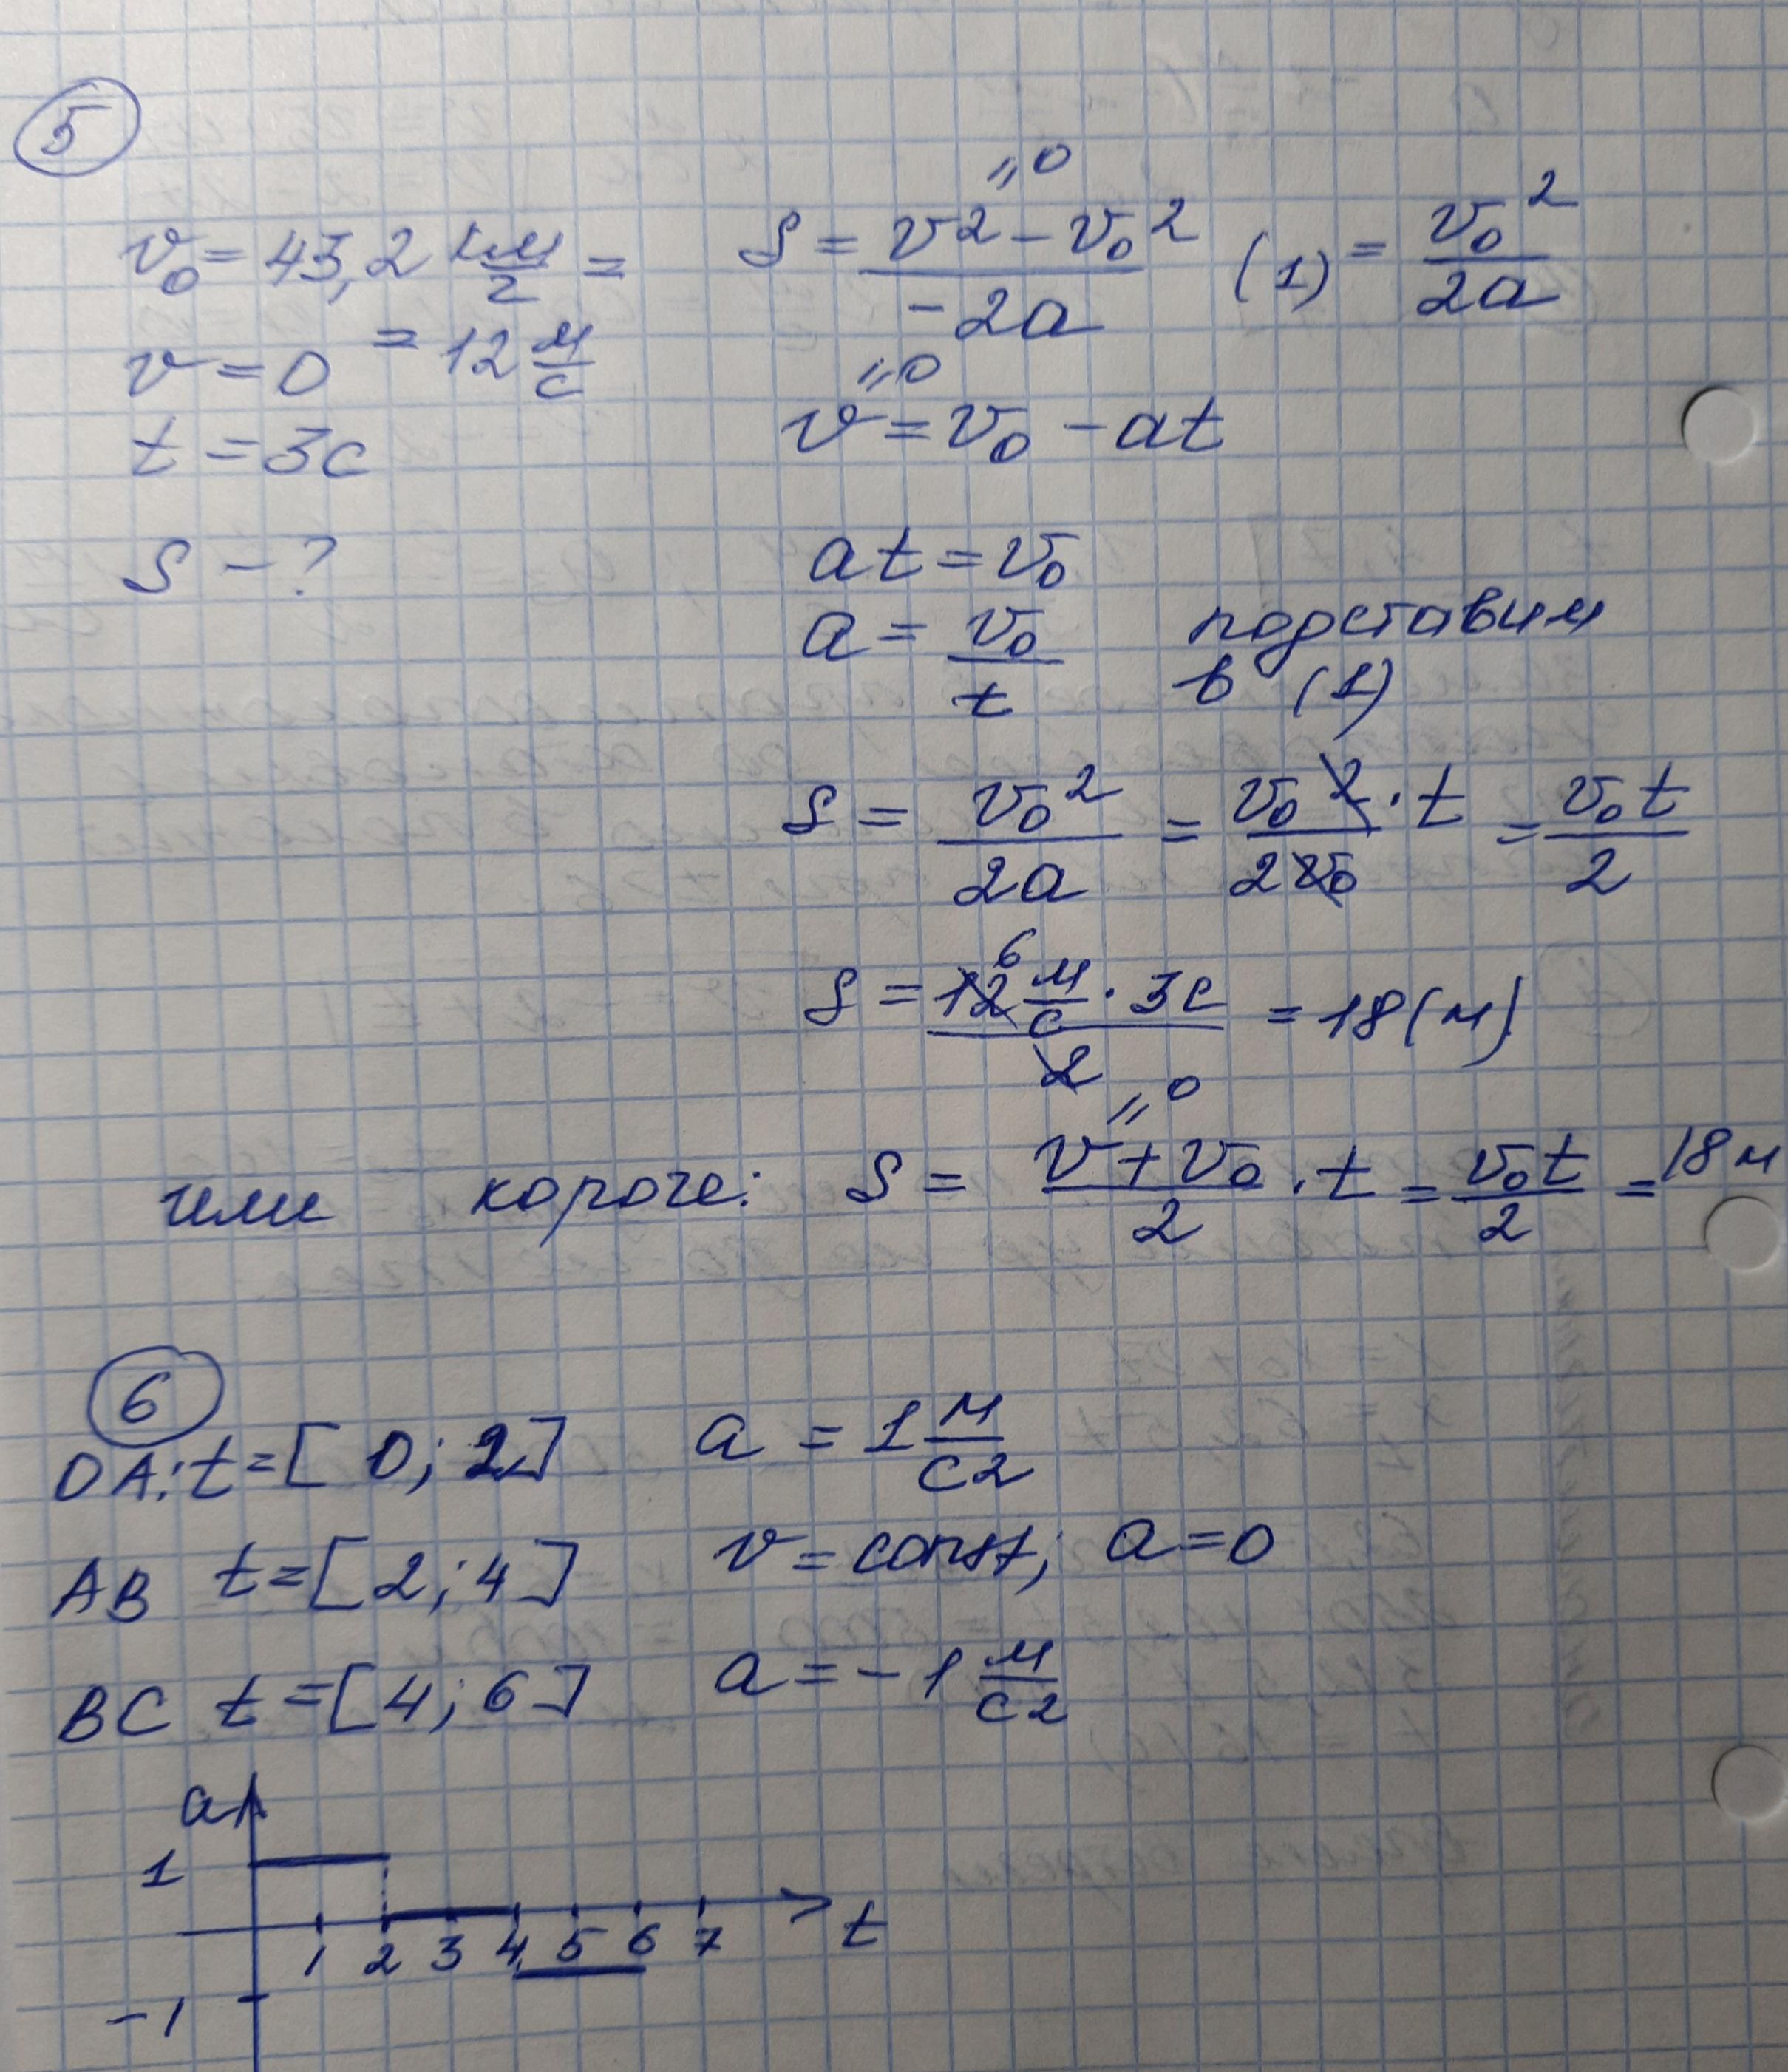 5
v₀ = 43,2 км/г = = 12 м/с
v = 0
t = 3с
S - ?
S = (v² - v₀²)/(-2a) (1) = v₀²/2a
"0
v = v₀ - at
"0
at = v₀
a = v₀/t подставим в (1)
S = v₀²/2a = v₀²·t/2v₀ = v₀t/2
S = 12 6 м/с · 3с / 2 = 18 (м)
или короче: S = (v + v₀)/2 · t = v₀t/2 = 18 м
"0
6
OA: t = [0; 2] a = 1 м/с2
AB t = [2; 4] v = const; a = 0
BC t = [4; 6] a = -1 м/с2
a
1
1 2 3 4 5 6 7 t
-1